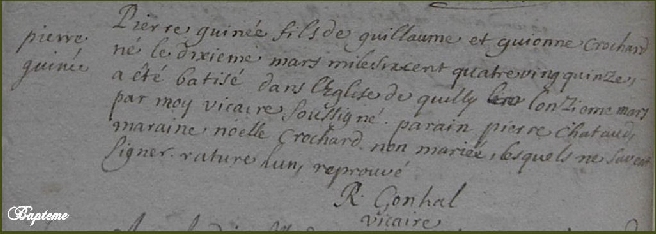 pierre
guinée
Pierre guinée fils de guillaume et guionne Crochard
né le dixieme mars mile sixcent quatre ving quinze,
a été batisé dans l'Eglise de quilly lonzieme mars
par moy vicaire soussigné. parain pierre
maraine noëlle Crochard non mariée, lesquels ne savent
signer. rature lun, reprouvé
R. Gonhal
vicaire
Bapteme